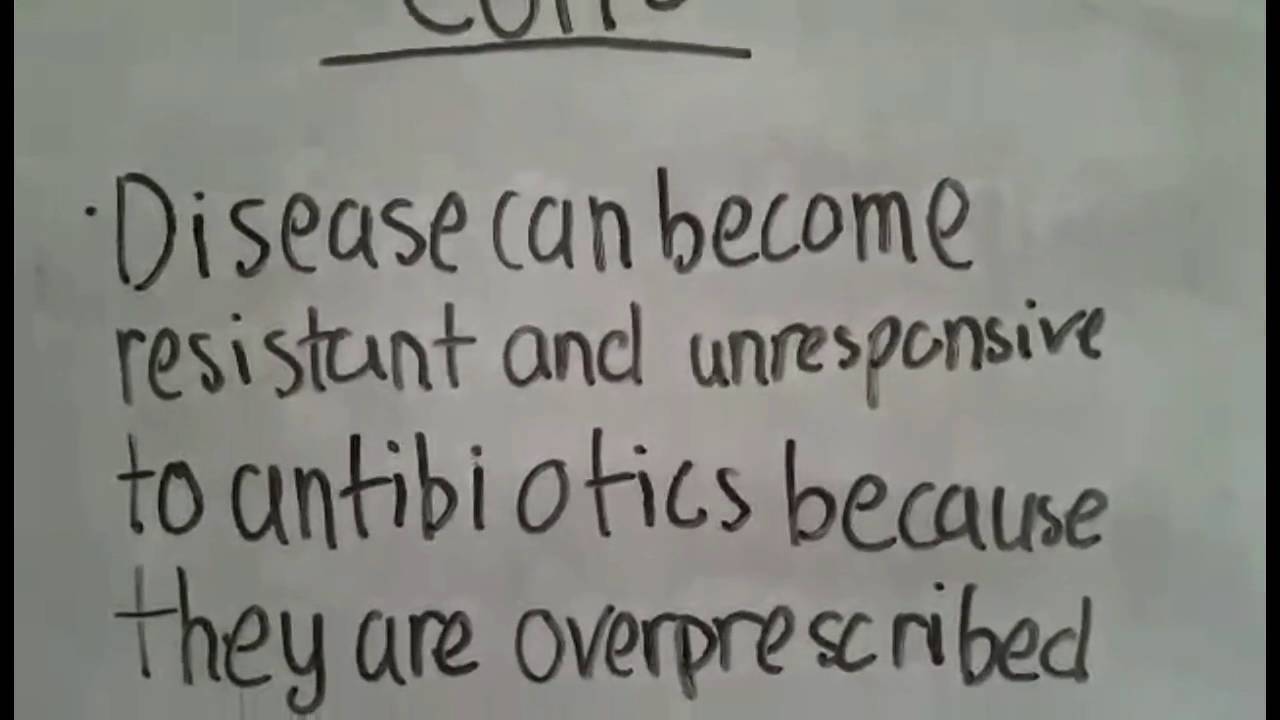 · Disease can become
resistant and unresponsive
to antibiotics because
they are overprescribed